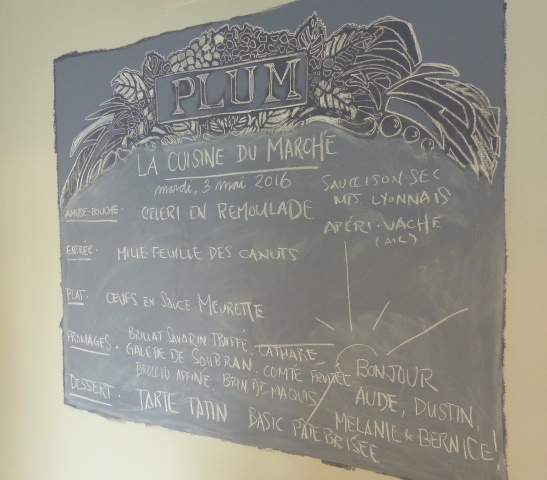 PLUM
LA CUISINE DU MARCHÉ
mardi, 3 mai 2016
SAUCISSON SEC
MTS. LYONNAIS
APÉRI-VACHE
(AIL)
AMUSE-BOUCHE. CELERI EN REMOULADE
ENTRÉE. MILLE-FEUILLE DES CANUTS
PLAT. OEUFS EN SAUCE MEURETTE
FROMAGES. BRILLAT SAVARIN TRUFFÉ, CATHARE
GALETTE DE SOUBRAN. COMTÉ FRUITÉE
BROCCIO AFFINÉ. BRIN DE MAQUIS
DESSERT. TARTE TATIN
BASIC PÂTE BRISÉE
BONJOUR
AUDE, DUSTIN,
MELANIE & BERNICE!